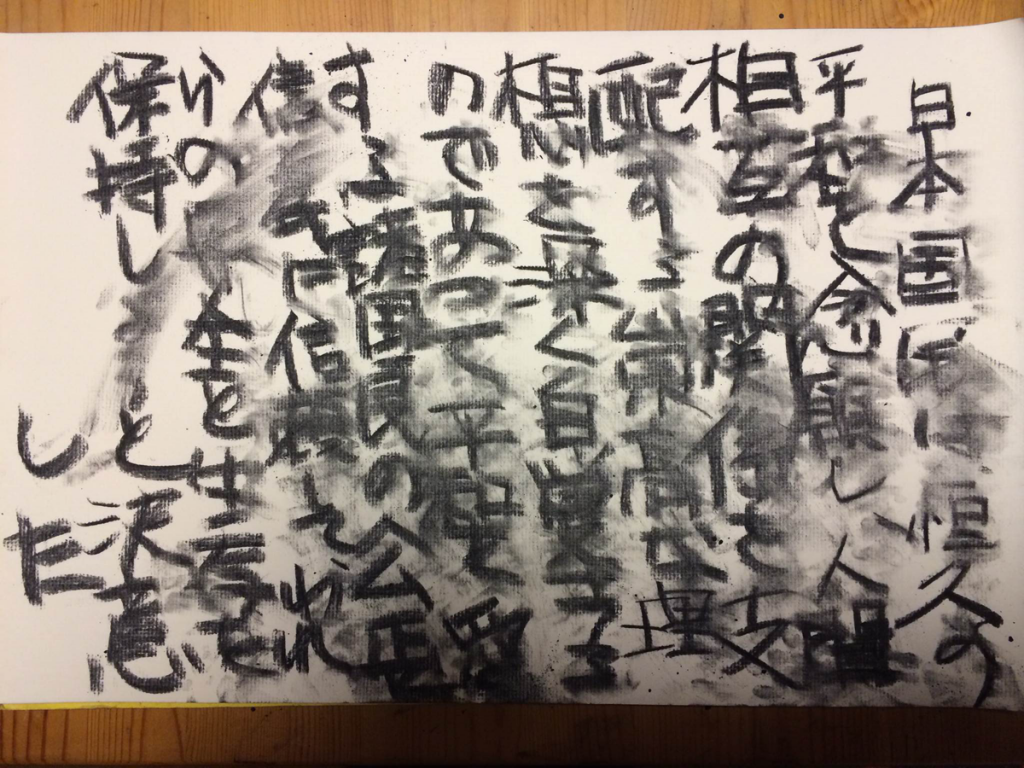 日本国民は恒久の
平和を念願し人間
相互の関係を支
配する崇高な理
想を深く自覚する
のであって平和を愛
する諸国民の公正
信義に信頼してわれ
らの全と生存を
保持しと決意
した